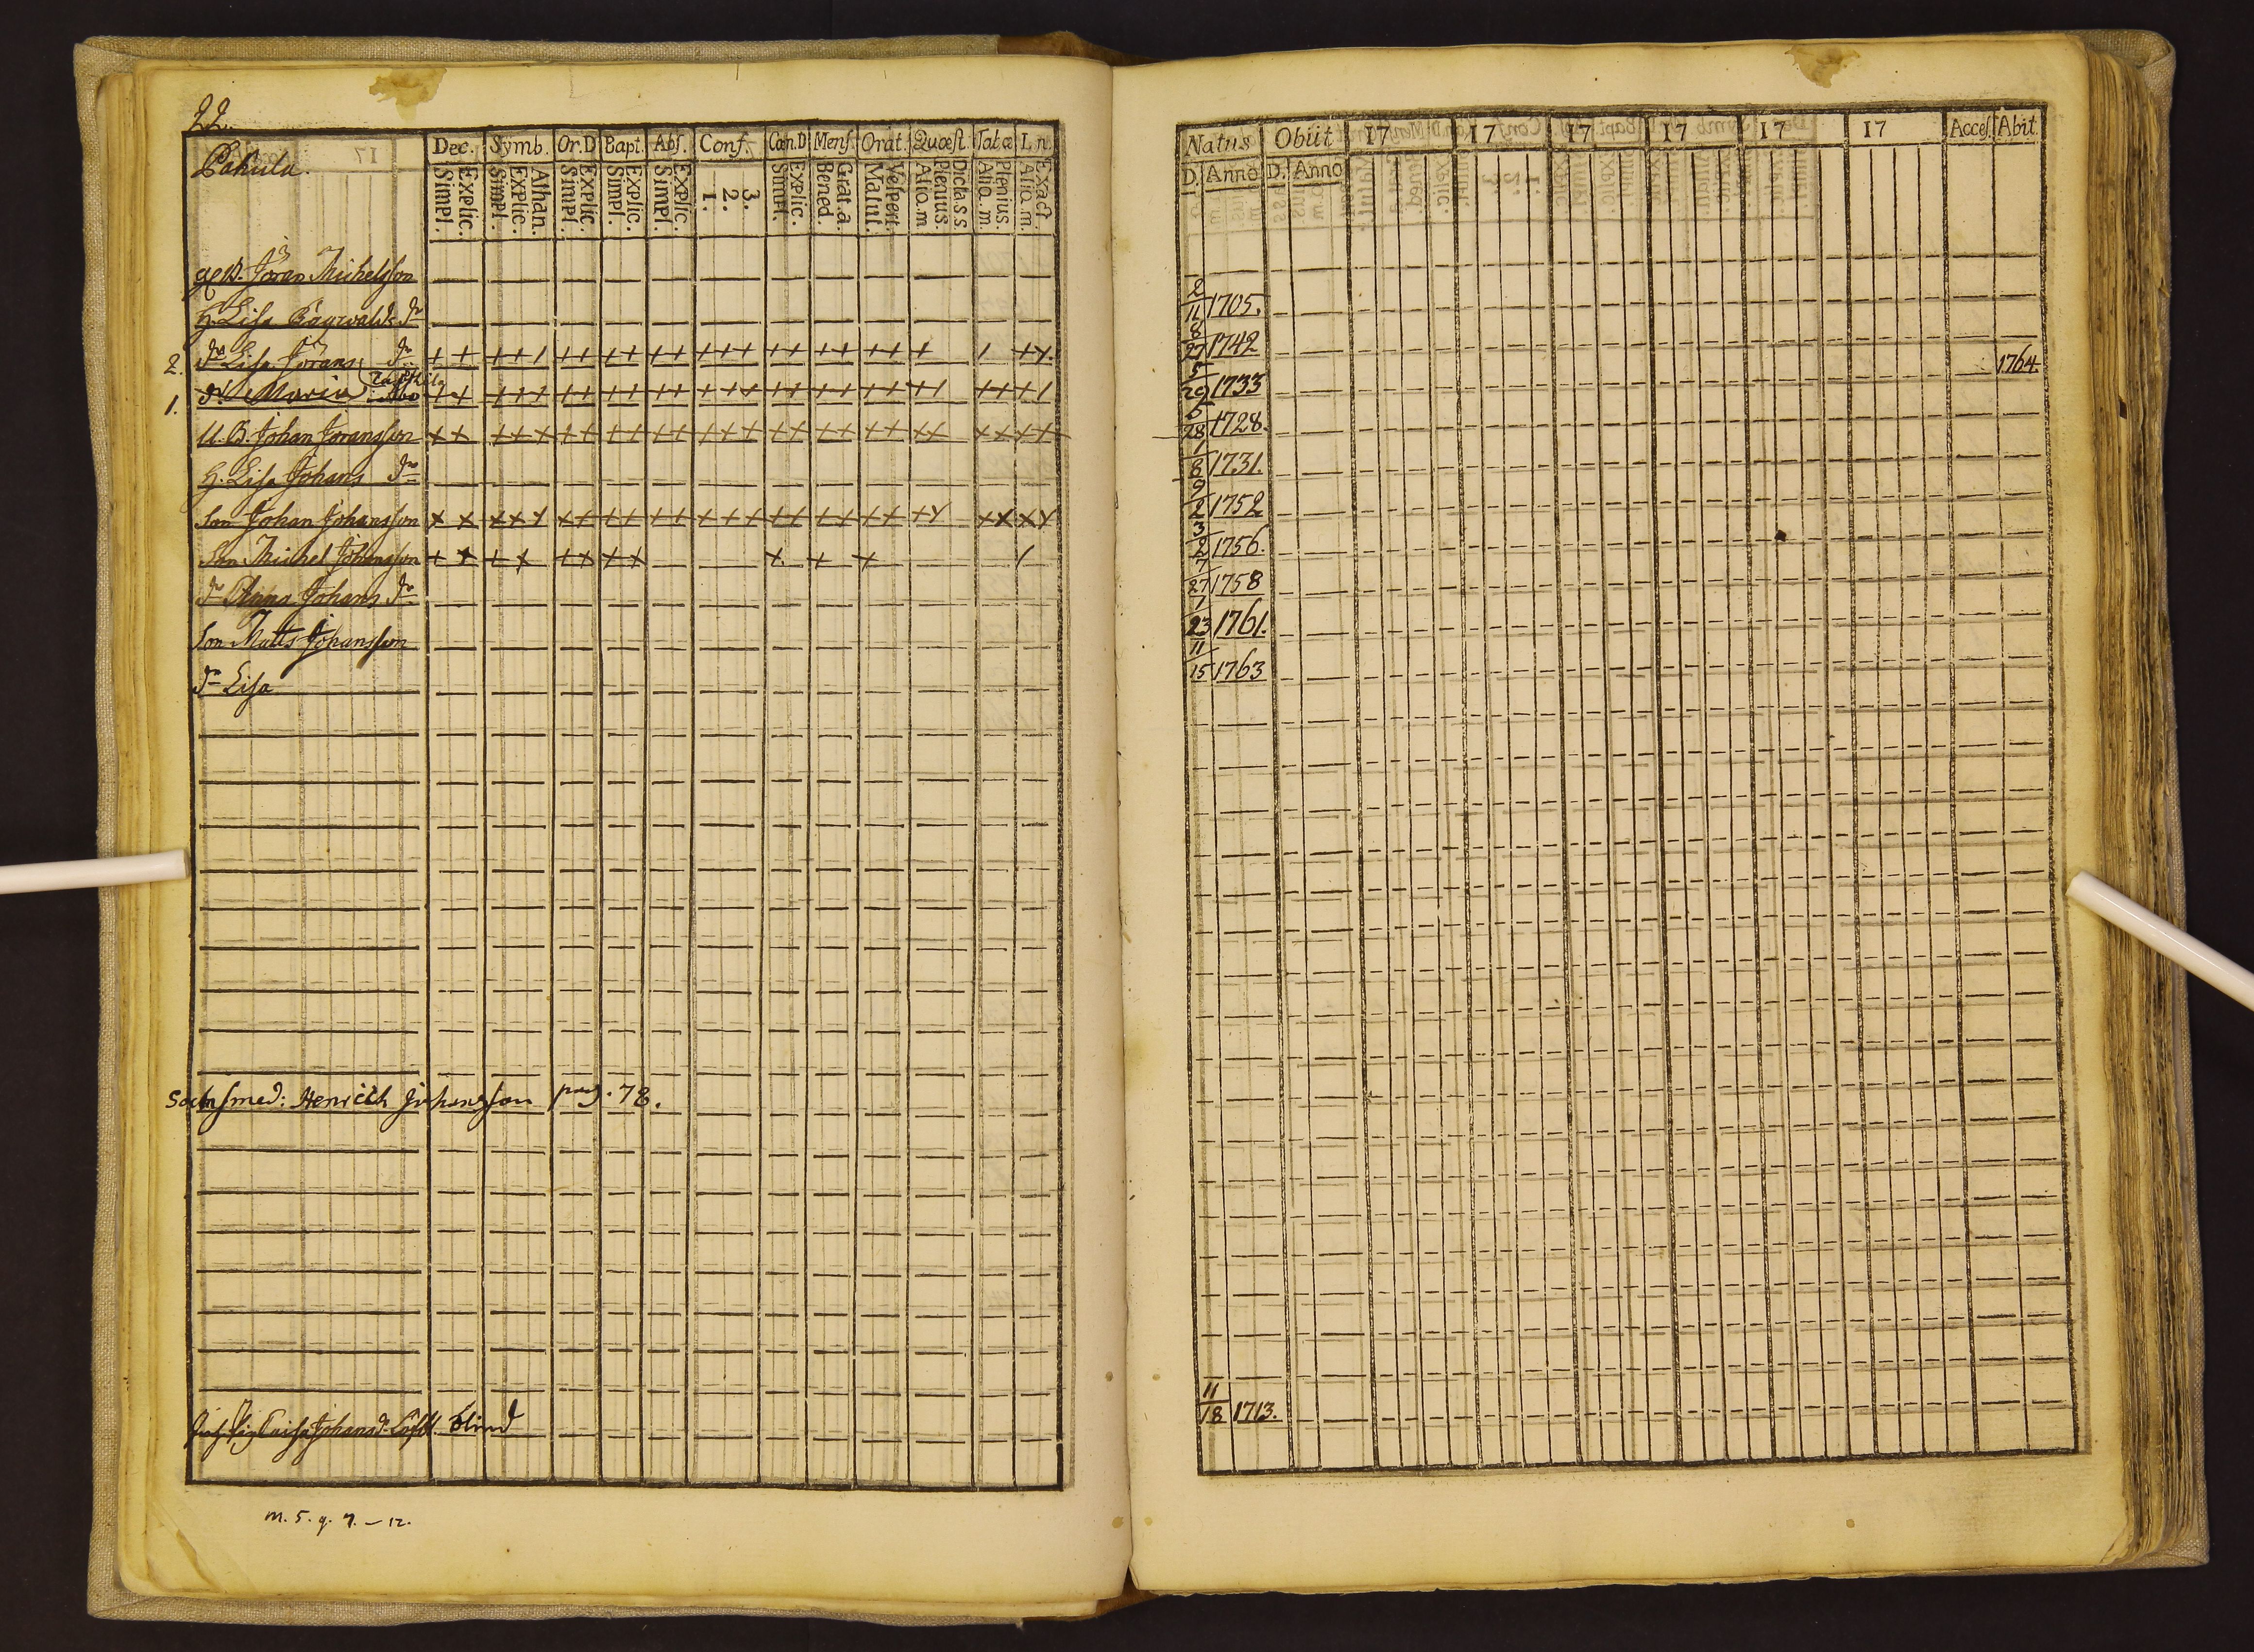 22.
Pakula.
Dec. Symb. Or.D Bapt. Abs. Conf. Cœn.D Mens. Orat. Quœst. Tabœ L. n.
Simpl. Explic. Simpl. Explic. Athan. Simpl. Explic. Simpl. Explic. Simpl. Explic. 1. 2. 3. Simpl. Explic. Bened. Grat.a. Matut. Vespert. Aliq.m Plenius. Dictass Aliq.m. Plenius. Aliq.m. Exact.
Jöran Michelsson
H. Lisa dr
2. dr Lisa Jörans dr + + + + 1 + + + + + + + + + + + + + + + + 1 + +
1. dr Maria Åbo
U. B. Johan Joransson
H. Lisa Johans dr
Son Johan Johansson
Son Michel Johansson
dr Anna Johans dr
Son Matts Johansson
dr Lisa
Sockn smed: Henrich Johansson pag. 78.
Caisa Johansd. blind
m. 5. q. 7. – 12.
Natus Obiit 17 17 17 17 17 17 Acces. Abit
D. Anno D. Anno
2/11 1705.
8/27 1742
5/29 1733 1764.
6/28 1728.
1/8 1731.
9/2 1752
3/2 1756.
7/27 1758
1/23 1761.
11/15 1763
11/18 1713.